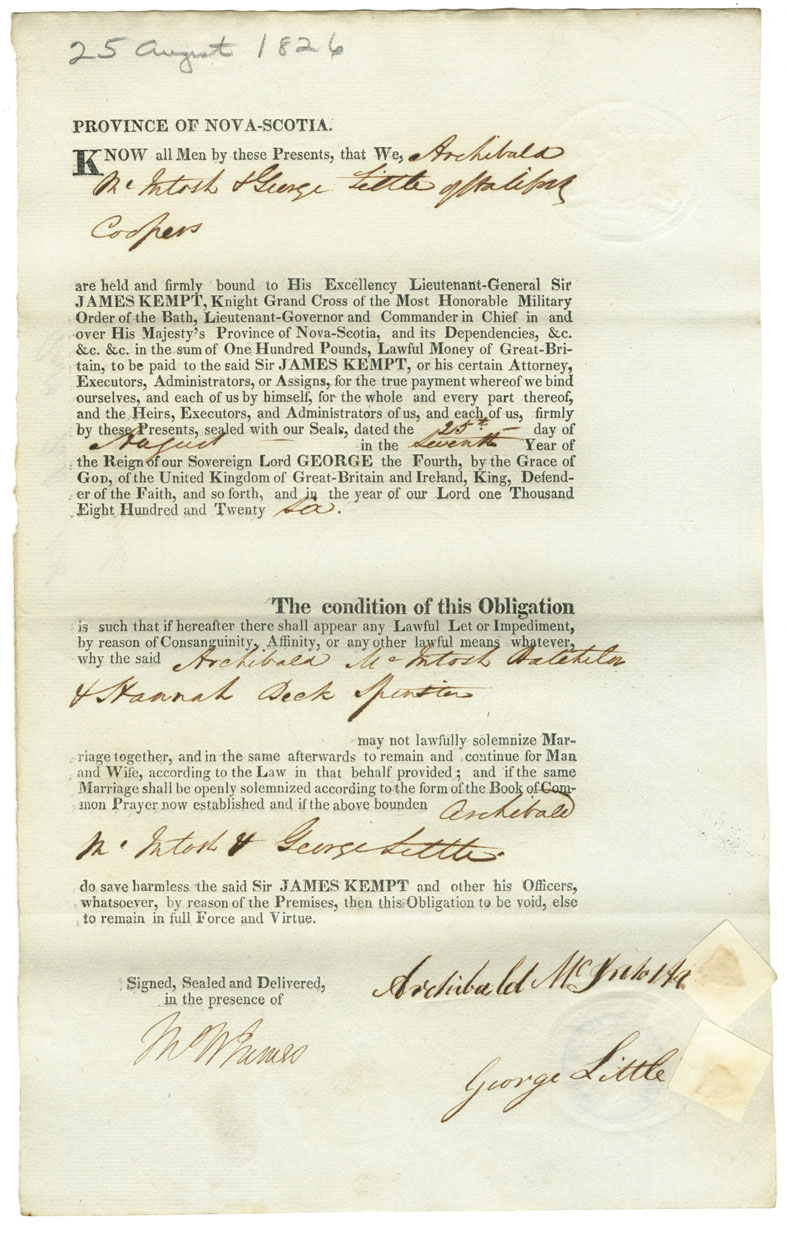 25 August 1826
PROVINCE OF NOVA-SCOTIA.
KNOW all Men by these Presents, that We, Archibald
Mc Intosh & George Little of Halifax
Coopers
are held and firmly bound to His Excellency Lieutenant-General Sir
JAMES KEMPT, Knight Grand Cross of the Most Honorable Military
Order of the Bath, Lieutenant-Governor and Commander in Chief in and
over His Majesty's Province of Nova-Scotia, and its Dependencies, &c.
&c. &c. in the sum of One Hundred Pounds, Lawful Money of Great-Bri-
tain, to be paid to the said Sir JAMES KEMPT, or his certain Attorney,
Executors, Administrators, or Assigns, for the true payment whereof we bind
ourselves, and each of us by himself, for the whole and every part thereof,
and the Heirs, Executors, and Administrators of us, and each of us, firmly
by these Presents, sealed with our Seals, dated the 25th day of
August — in the Seventh Year of
the Reign of our Sovereign Lord GEORGE the Fourth, by the Grace of
GOD, of the United Kingdom of Great-Britain and Ireland, King, Defend-
er of the Faith, and so forth, and in the year of our Lord one Thousand
Eight Hundred and Twenty Six.
The condition of this Obligation
is such that if hereafter there shall appear any Lawful Let or Impediment,
by reason of Consanguinity, Affinity, or any other lawful means whatever,
why the said Archibald Mc Intosh Batchelor
& Hannah Beck Spinster
may not lawfully solemnize Mar-
riage together, and in the same afterwards to remain and continue for Man
and Wife, according to the Law in that behalf provided; and if the same
Marriage shall be openly solemnized according to the form of the Book of Com-
mon Prayer now established and if the above bounden Archibald
Mc Intosh & George Little.
do save harmless the said Sir JAMES KEMPT and other his Officers,
whatsoever, by reason of the Premises, then this Obligation to be void, else
to remain in full Force and Virtue.
Signed, Sealed and Delivered,
in the presence of
Archibald McIntosh
George Little